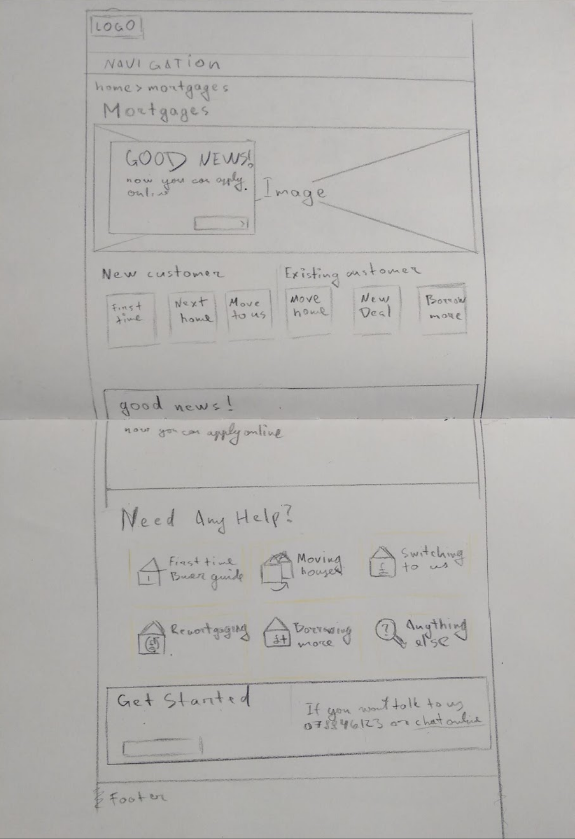 LOGO
NAVIGATION
home > mortgages
Mortgages
GOOD NEWS!
now you can apply.
online
Image
New customer
Existing customer
First
time
Next
home
Move
to us
Move
home
New
Deal
Borrow
more
good news!
now you can apply online
Need Any Help?
First time
Buer guide
Moving
houses
Switching
to us
Remortgaging
Borrowing
more
?
Anything
else
Get Started
If you want talk to us
or chat online
Footer